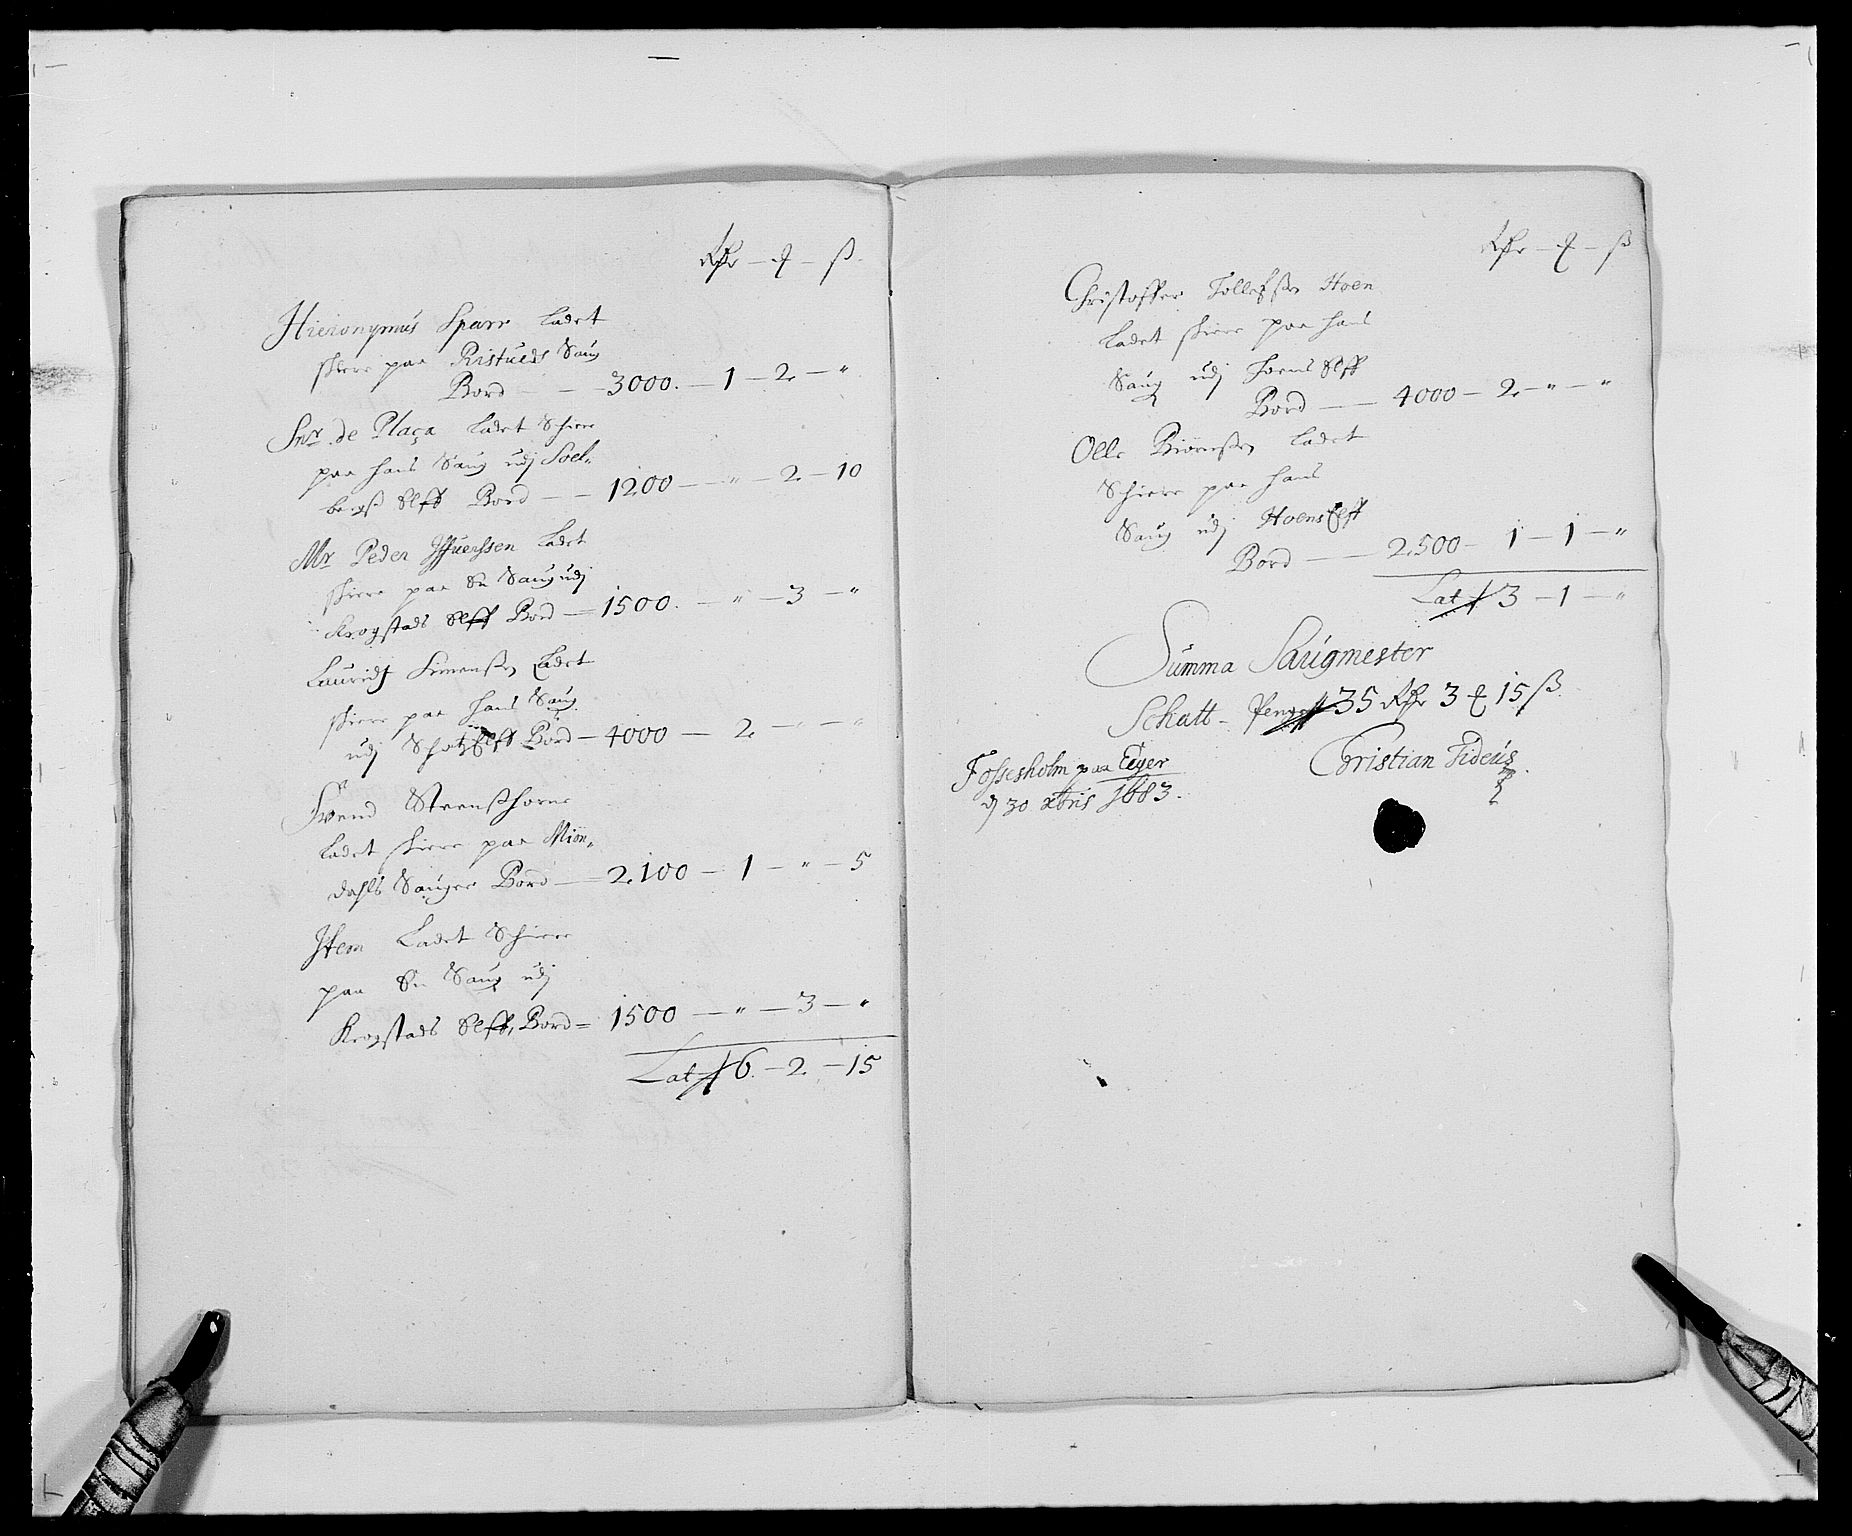 Rdr — ₰ — ß.
Hieronymus Sparr Ladet
skiere paa Ristueds Saug
Bord — — 3000. — 1 — 2 — "
Snr. de Plaça Ladet Schiere
paa hans Saug udj Soel-
bergs Elff Bord — — 1200 — " — 2 — 10
Mr Peder Ladet
skiere paa En Saug udj
Krogstads Elff Bord — 1500. — " — 3 — "
Lauridz Simenssen Ladet
skiere paa hans Saug
udj Elff Bord — 4000 — 2 — — "
Svend Steenshorne
Ladet skiere paa Miøn-
dahls Sauger Bord — 2100 — 1 — " — 5
Item Ladet Schiere
paa En Saug udj
Krogstads Elff, Bord = 1500 — " — 3 — "
Lat 6 — 2 — 15
Rdr — ₰ — ß
Christoffer Tollefsen Hoen
Ladet skiere paa hans
Saug udj Hoens Elff
Bord — 4000 — 2 — " — "
Olle Biørnssen Ladet
Schiere paa hans
Saug udj Hoens Elff
Bord — 2500 — 1 — 1 — "
Lat 3 — 1 — "
Summa Saugmester
Schatt - Penge 35 Rdr 3 ₰ 15 ß.
Fossesholm paa Eger
d 30 xbris 1683.
Christian Fideus